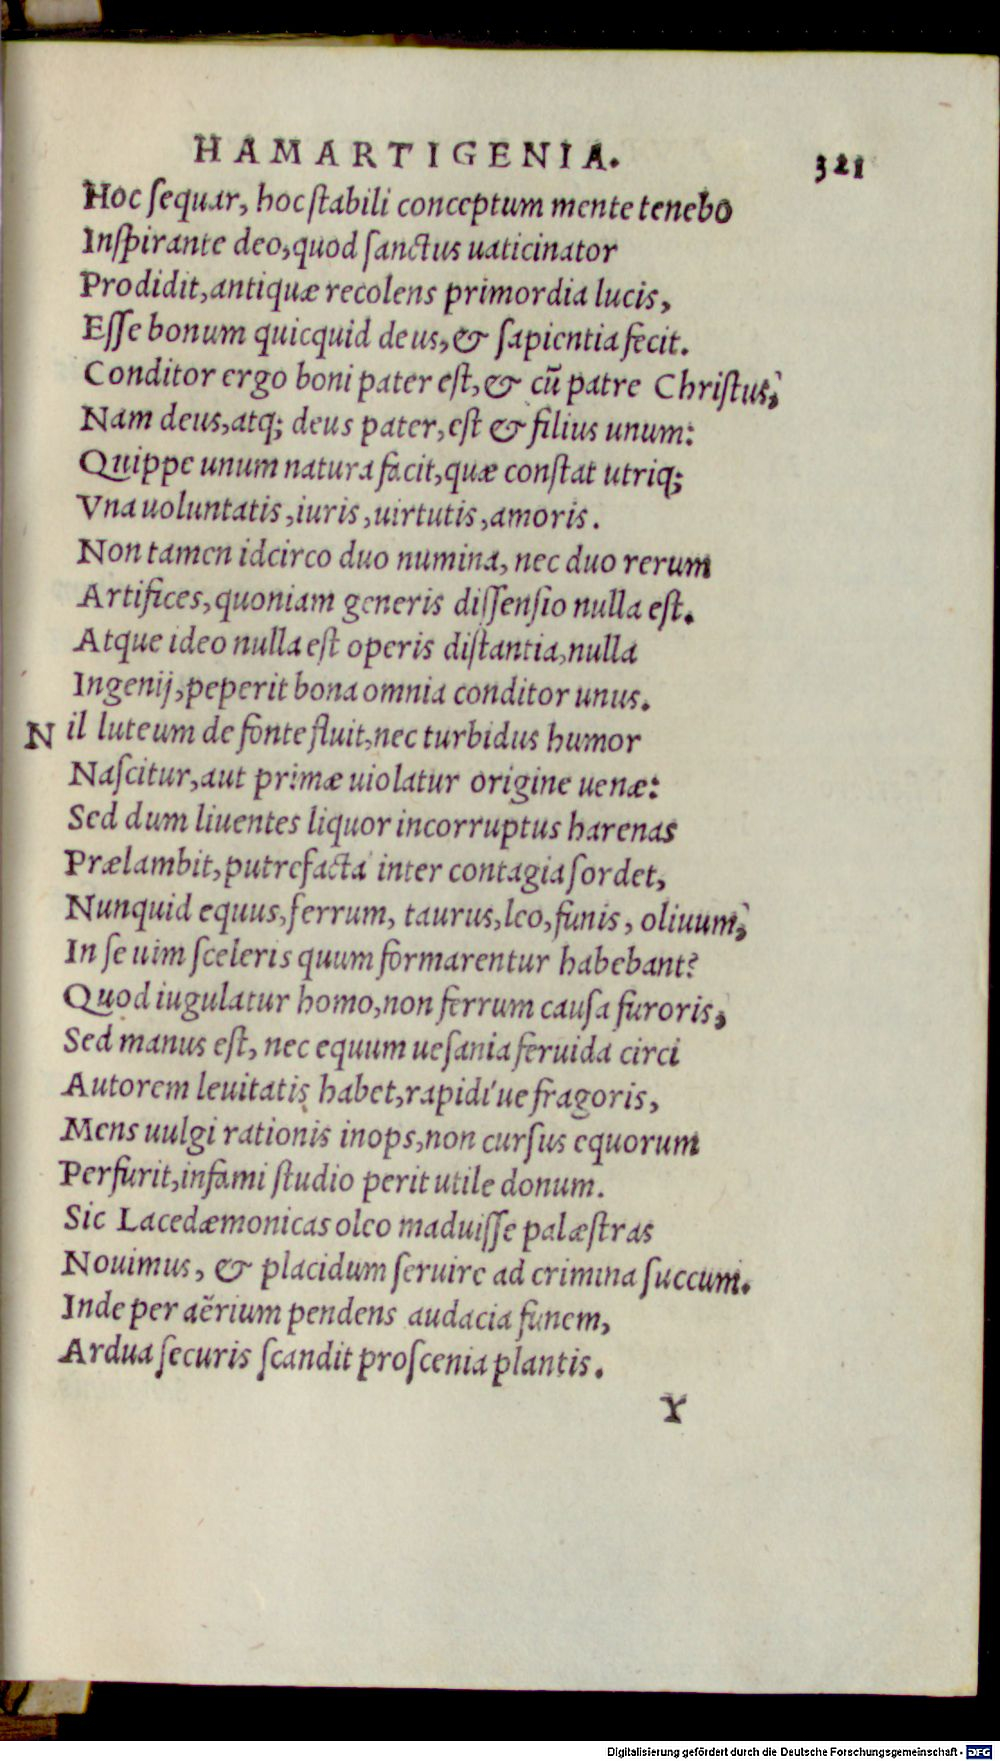 HAMARTIGENIA. 321
Hoc ſequar, hoc ſtabili conceptum mente tenebo
Inſpirante deo, quod ſanctus uaticinator
Prodidit, antiquæ recolens primordia lucis,
Eſſe bonum quicquid deus, & ſapientia fecit.
Conditor ergo boni pater eſt, & cũ patre Chriſtus,
Nam deus, atq; deus pater, eſt & filius unum:
Quippe unum natura facit, quæ conſtat utriq;
Vna uoluntatis, iuris, uirtutis, amoris.
Non tamen idcirco duo numina, nec duo rerum
Artifices, quoniam generis diſſenſio nulla eſt.
Atque ideo nulla eſt operis diſtantia, nulla
Ingenij, peperit bona omnia conditor unus.
N il luteum de fonte fluit, nec turbidus humor
Naſcitur, aut primæ uiolatur origine uenæ:
Sed dum liuentes liquor incorruptus harenas
Prælambit, putrefacta inter contagia ſordet,
Nunquid equus, ferrum, taurus, leo, funis, oliuum,
In ſe uim ſceleris quum formarentur habebant?
Quod iugulatur homo, non ferrum cauſa furoris,
Sed manus eſt, nec equum ueſania feruida circi
Autorem leuitatis habet, rapidi'ue fragoris,
Mens uulgi rationis inops, non curſus equorum
Perfurit, infami ſtudio perit utile donum.
Sic Lacedæmonicas oleo maduiſſe palæſtras
Nouimus, & placidum ſeruire ad crimina ſuccum.
Inde per aërium pendens audacia funem,
Ardua ſecuris ſcandit proſcenia plantis.
Y
Digitalisierung gefördert durch die Deutsche Forschungsgemeinschaft - DFG